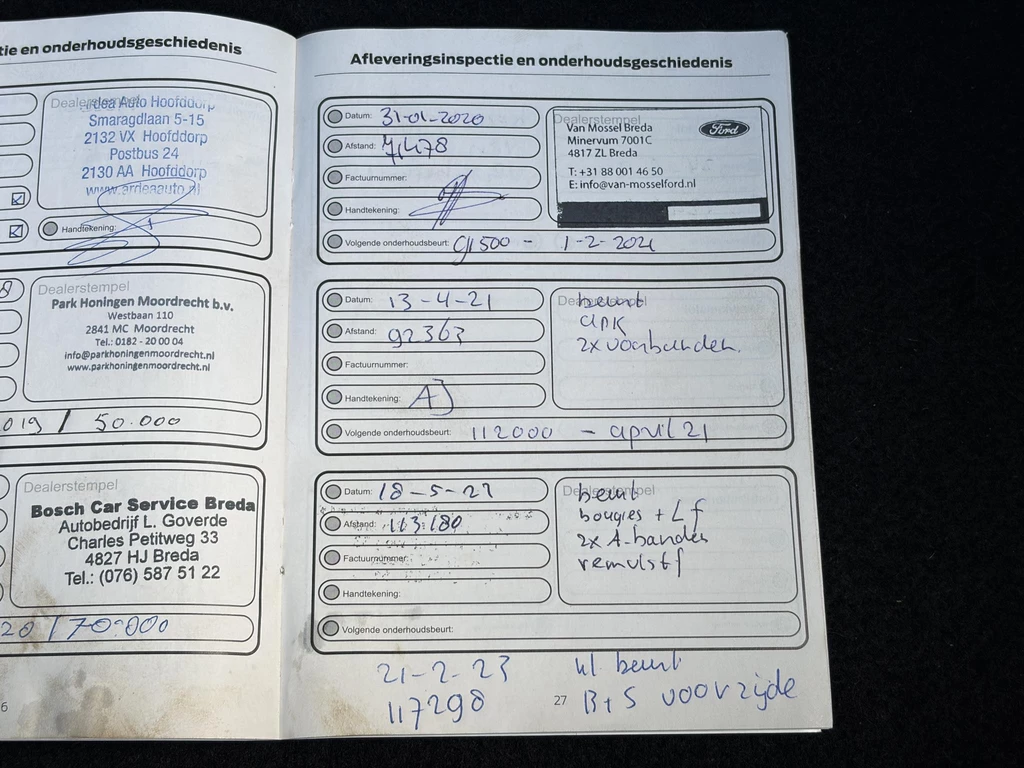 tie en onderhoudsgeschiedenis
Dealerstempel
Ardea Auto Hoofddorp
Smaragdlaan 5-15
2132 VX Hoofddorp
Postbus 24
2130 AA Hoofddorp
www.ardeaauto.nl
Handtekening:
Dealerstempel
Park Honingen Moordrecht b.v.
Westbaan 110
2841 MC Moordrecht
Tel.: 0182 - 20 00 04
info@parkhoningenmoordrecht.nl
www.parkhoningenmoordrecht.nl
019 / 50.000
Dealerstempel
Bosch Car Service Breda
Autobedrijf L. Goverde
Charles Petitweg 33
4827 HJ Breda
Tel.: (076) 587 51 22
20 / 70.000
6
Afleveringsinspectie en onderhoudsgeschiedenis
Datum: 31-01-2020
Afstand:
Factuurnummer:
Handtekening:
Volgende onderhoudsbeurt: 91500 - 1-2-2021
Dealerstempel
Van Mossel Breda
Minervum 7001C
4817 ZL Breda
T: +31 88 001 46 50
E: info@van-mosselford.nl
Ford
Datum: 13-4-21
Afstand: 92363
Factuurnummer:
Handtekening: AJ
Volgende onderhoudsbeurt: 112000 - april 21
Dealerstempel
beurt
apk
2x voorbanden.
Datum: 18-5-21
Afstand: 113.180
Factuurnummer:
Handtekening:
Volgende onderhoudsbeurt:
Dealerstempel
beurt
bougies + Lf
2x A-banden
remvlstf
21-2-23 kl beurt
117298 B+S voorzijde
27